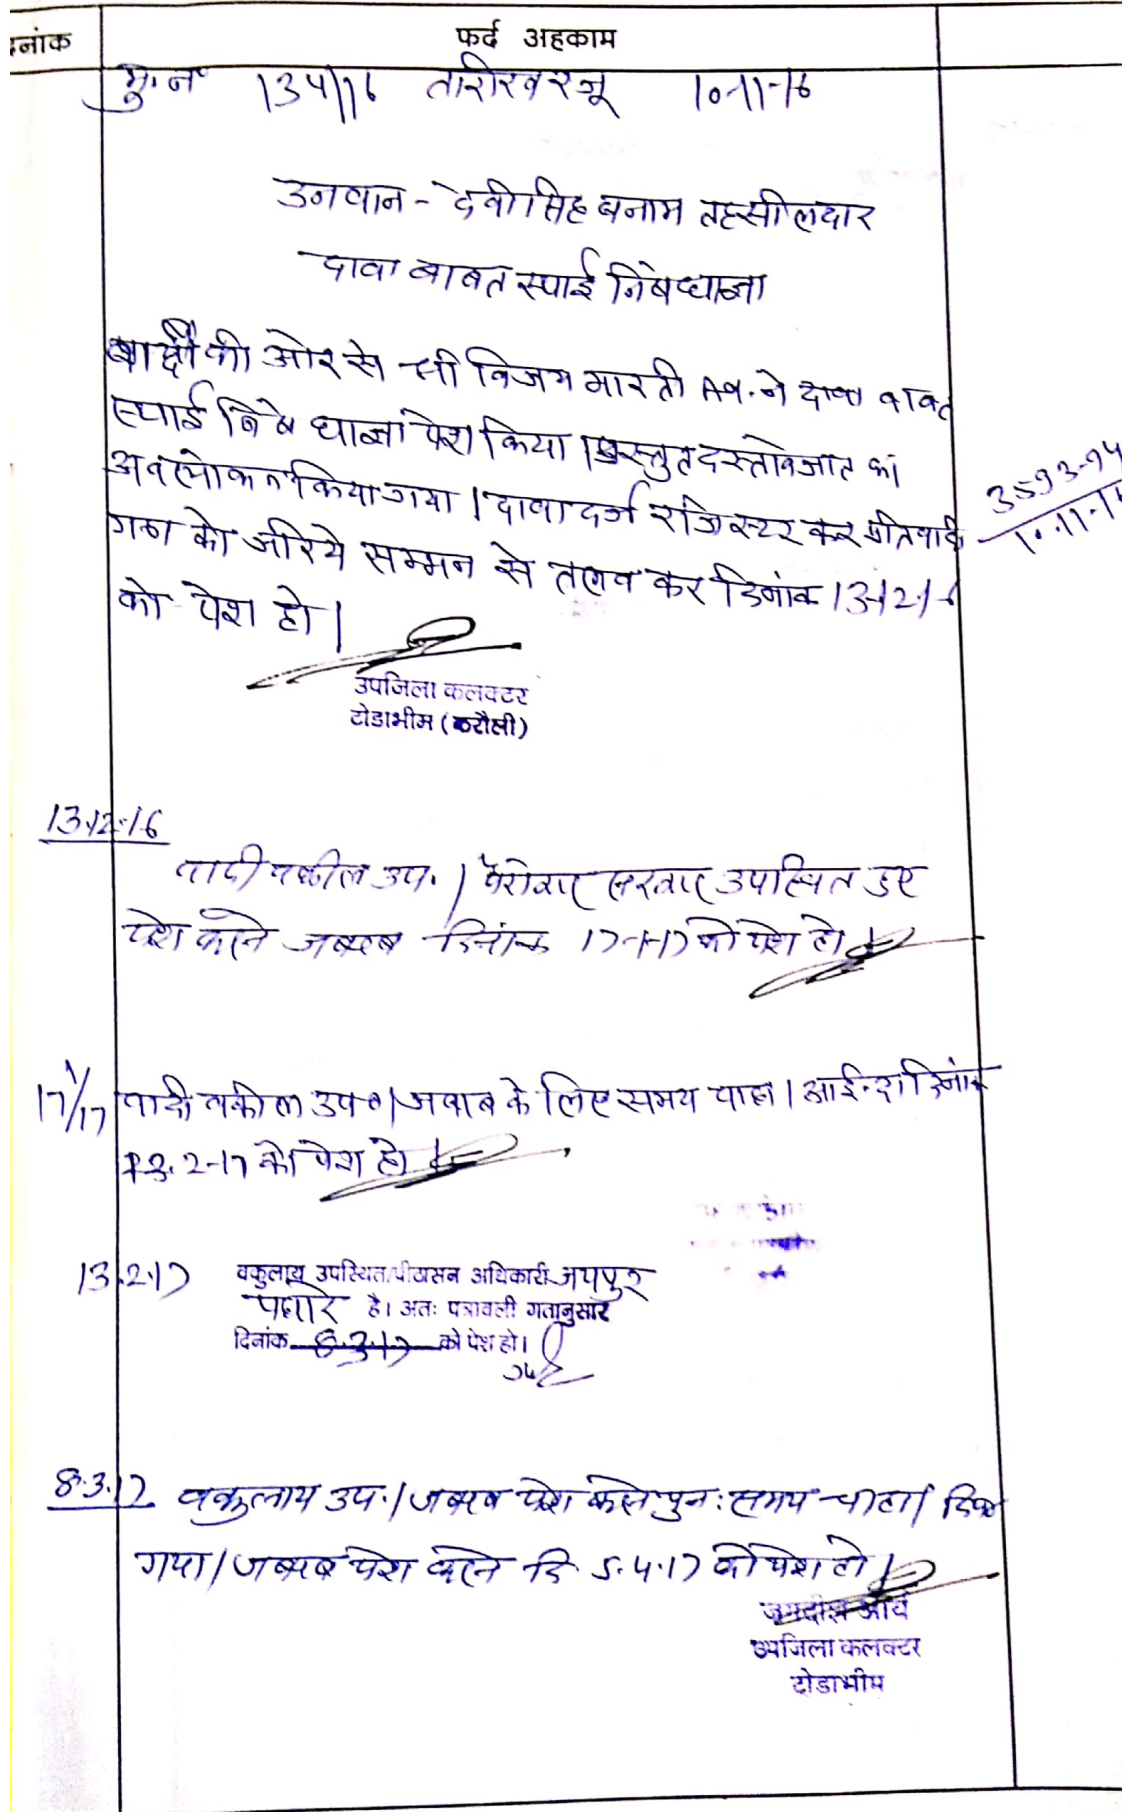 दिनांक फर्द अहकाम
मु. नं 134/16 तारीख रजू 10-11-16
उनवान - देवीसिंह बनाम तहसीलदार
दावा बाबत स्थाई निषेधाज्ञा
वादी की ओर से श्री विजय भारती Av. ने दावा बाबत
स्थाई निषेधाज्ञा पेश किया। प्रस्तुत दस्तावेजात का
अवलोकन किया गया। दावा दर्ज रजिस्टर कर प्रतिवादी
3593-94
10.11.16
गण को जरिये सम्मन से तलब कर दिनांक 13-12-16
को पेश हो।
उपजिला कलक्टर
टोडाभीम (करौली)
13.12.16
वादी वकील उप. । पैरोकार सरकार उपस्थित हुए
पेश करने जबाब दिनांक 17-1-17 को पेश हो
17/1/17 वादी वकील उप० । जवाब के लिए समय चाहा । आईन्दा दिनांक
13.2-17 को पेश हो
13.2.17 वकुलाय उपस्थित/पीठासन अधिकारी जयपुर
पधारे है। अतः पत्रावली गतानुसार
दिनांक 8.3.17 को पेश हो।
8.3.17 वकुलाय उप. । जबाब पेश करने पुन: समय चाहा । दिया
गया । जबाब पेश करने दि 5.4.17 को पेश हो
जगदीश आर्य
उपजिला कलक्टर
टोडाभीम